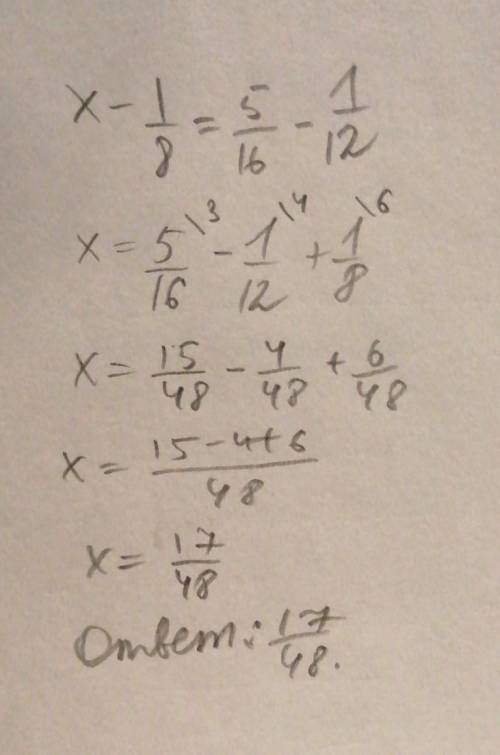 x - 1/8 = 5/16 - 1/12
x = 5/16 \3 - 1/12 \4 + 1/8 \6
x = 15/48 - 4/48 + 6/48
x = (15-4+6)/48
x = 17/48
Ответ: 17/48.